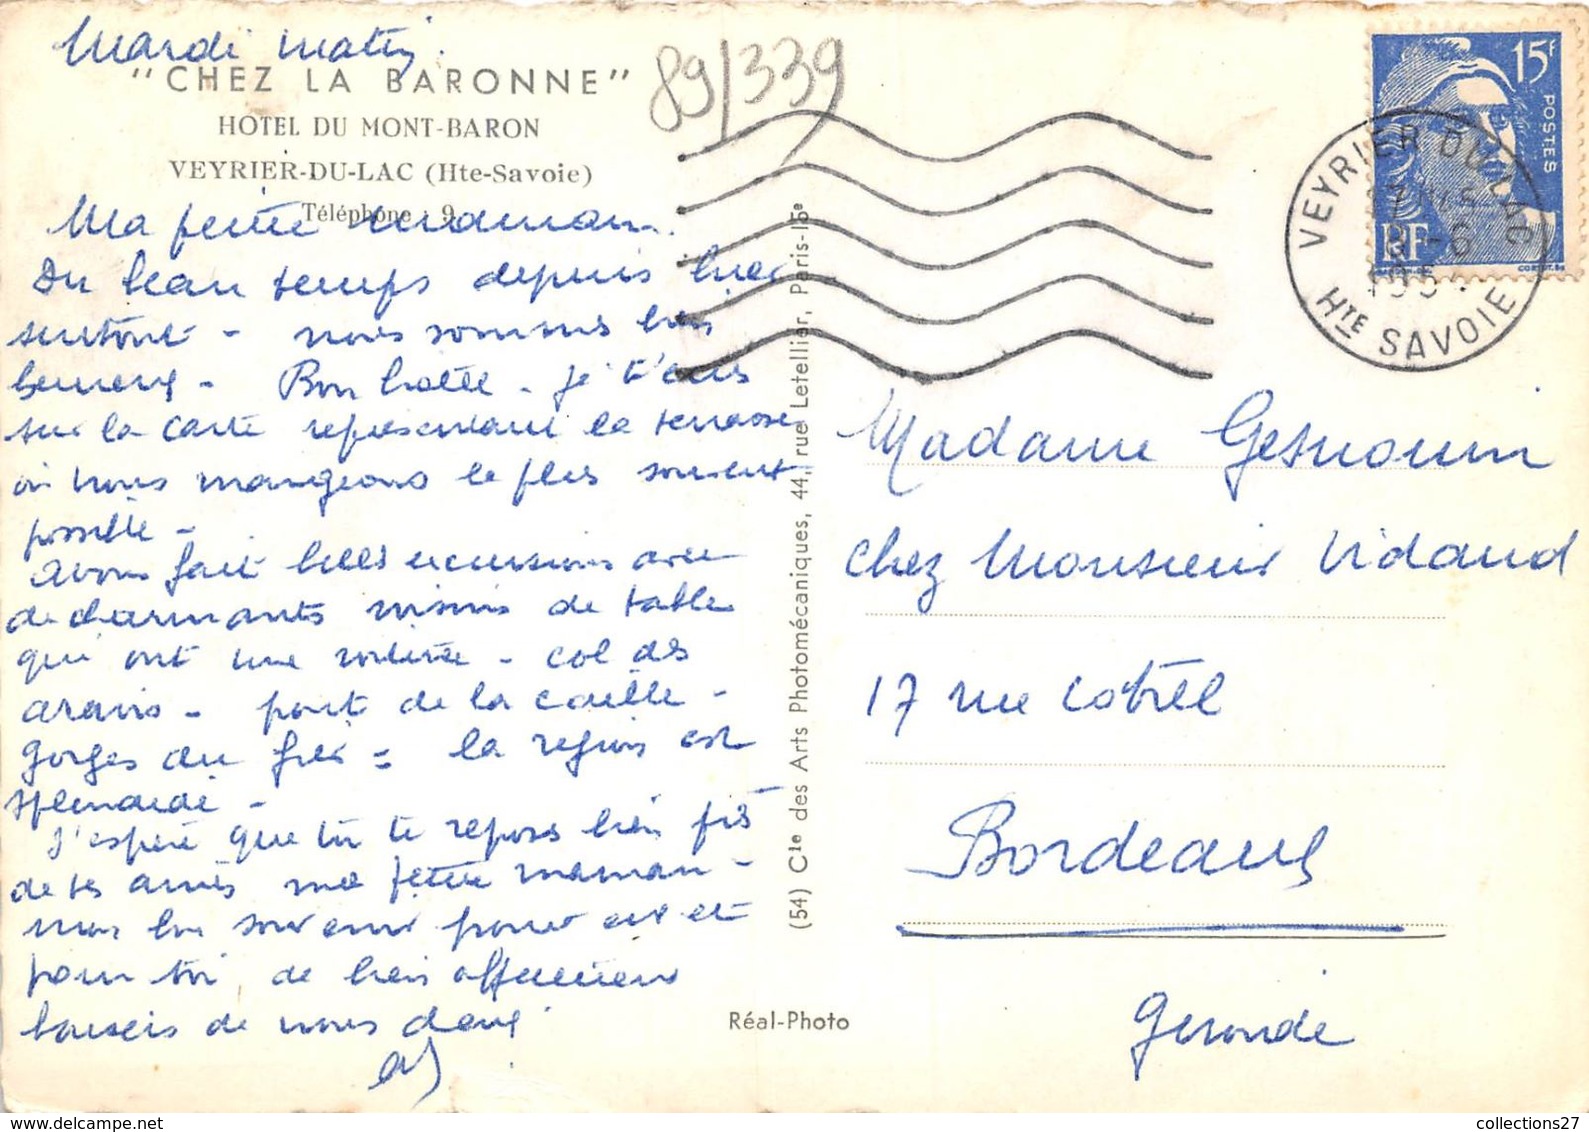 Mardi matin.
"CHEZ LA BARONNE"
HOTEL DU MONT-BARON
VEYRIER-DU-LAC (Hte-Savoie)
Téléphone : 9
Ma petite maman.
Du beau temps depuis hier
surtout - nous sommes bien
heureux - Bon hôtel - je t'écris
sur la carte représentant la terrasse
où nous mangeons le plus souvent
possible -
Avons fait belles excursions avec
de charmants voisins de table
qui ont une voiture - col des
aravis -
gorges du fier = la région est
splendide -
J'espère que tu te reposes bien près
de tes amies ma petite maman -
mon bon souvenir pour eux et
pour toi, de bien affectueux
baisers de nous deux
89/339
(54) Cie des Arts Photomécaniques, 44, rue Letellier, Paris-15e
Réal-Photo
15F
POSTES
RF
VEYRIER DU LAC
HTE SAVOIE
Madame
chez Monsieur Vidaud
17 rue
Bordeaux
Gironde
collections27